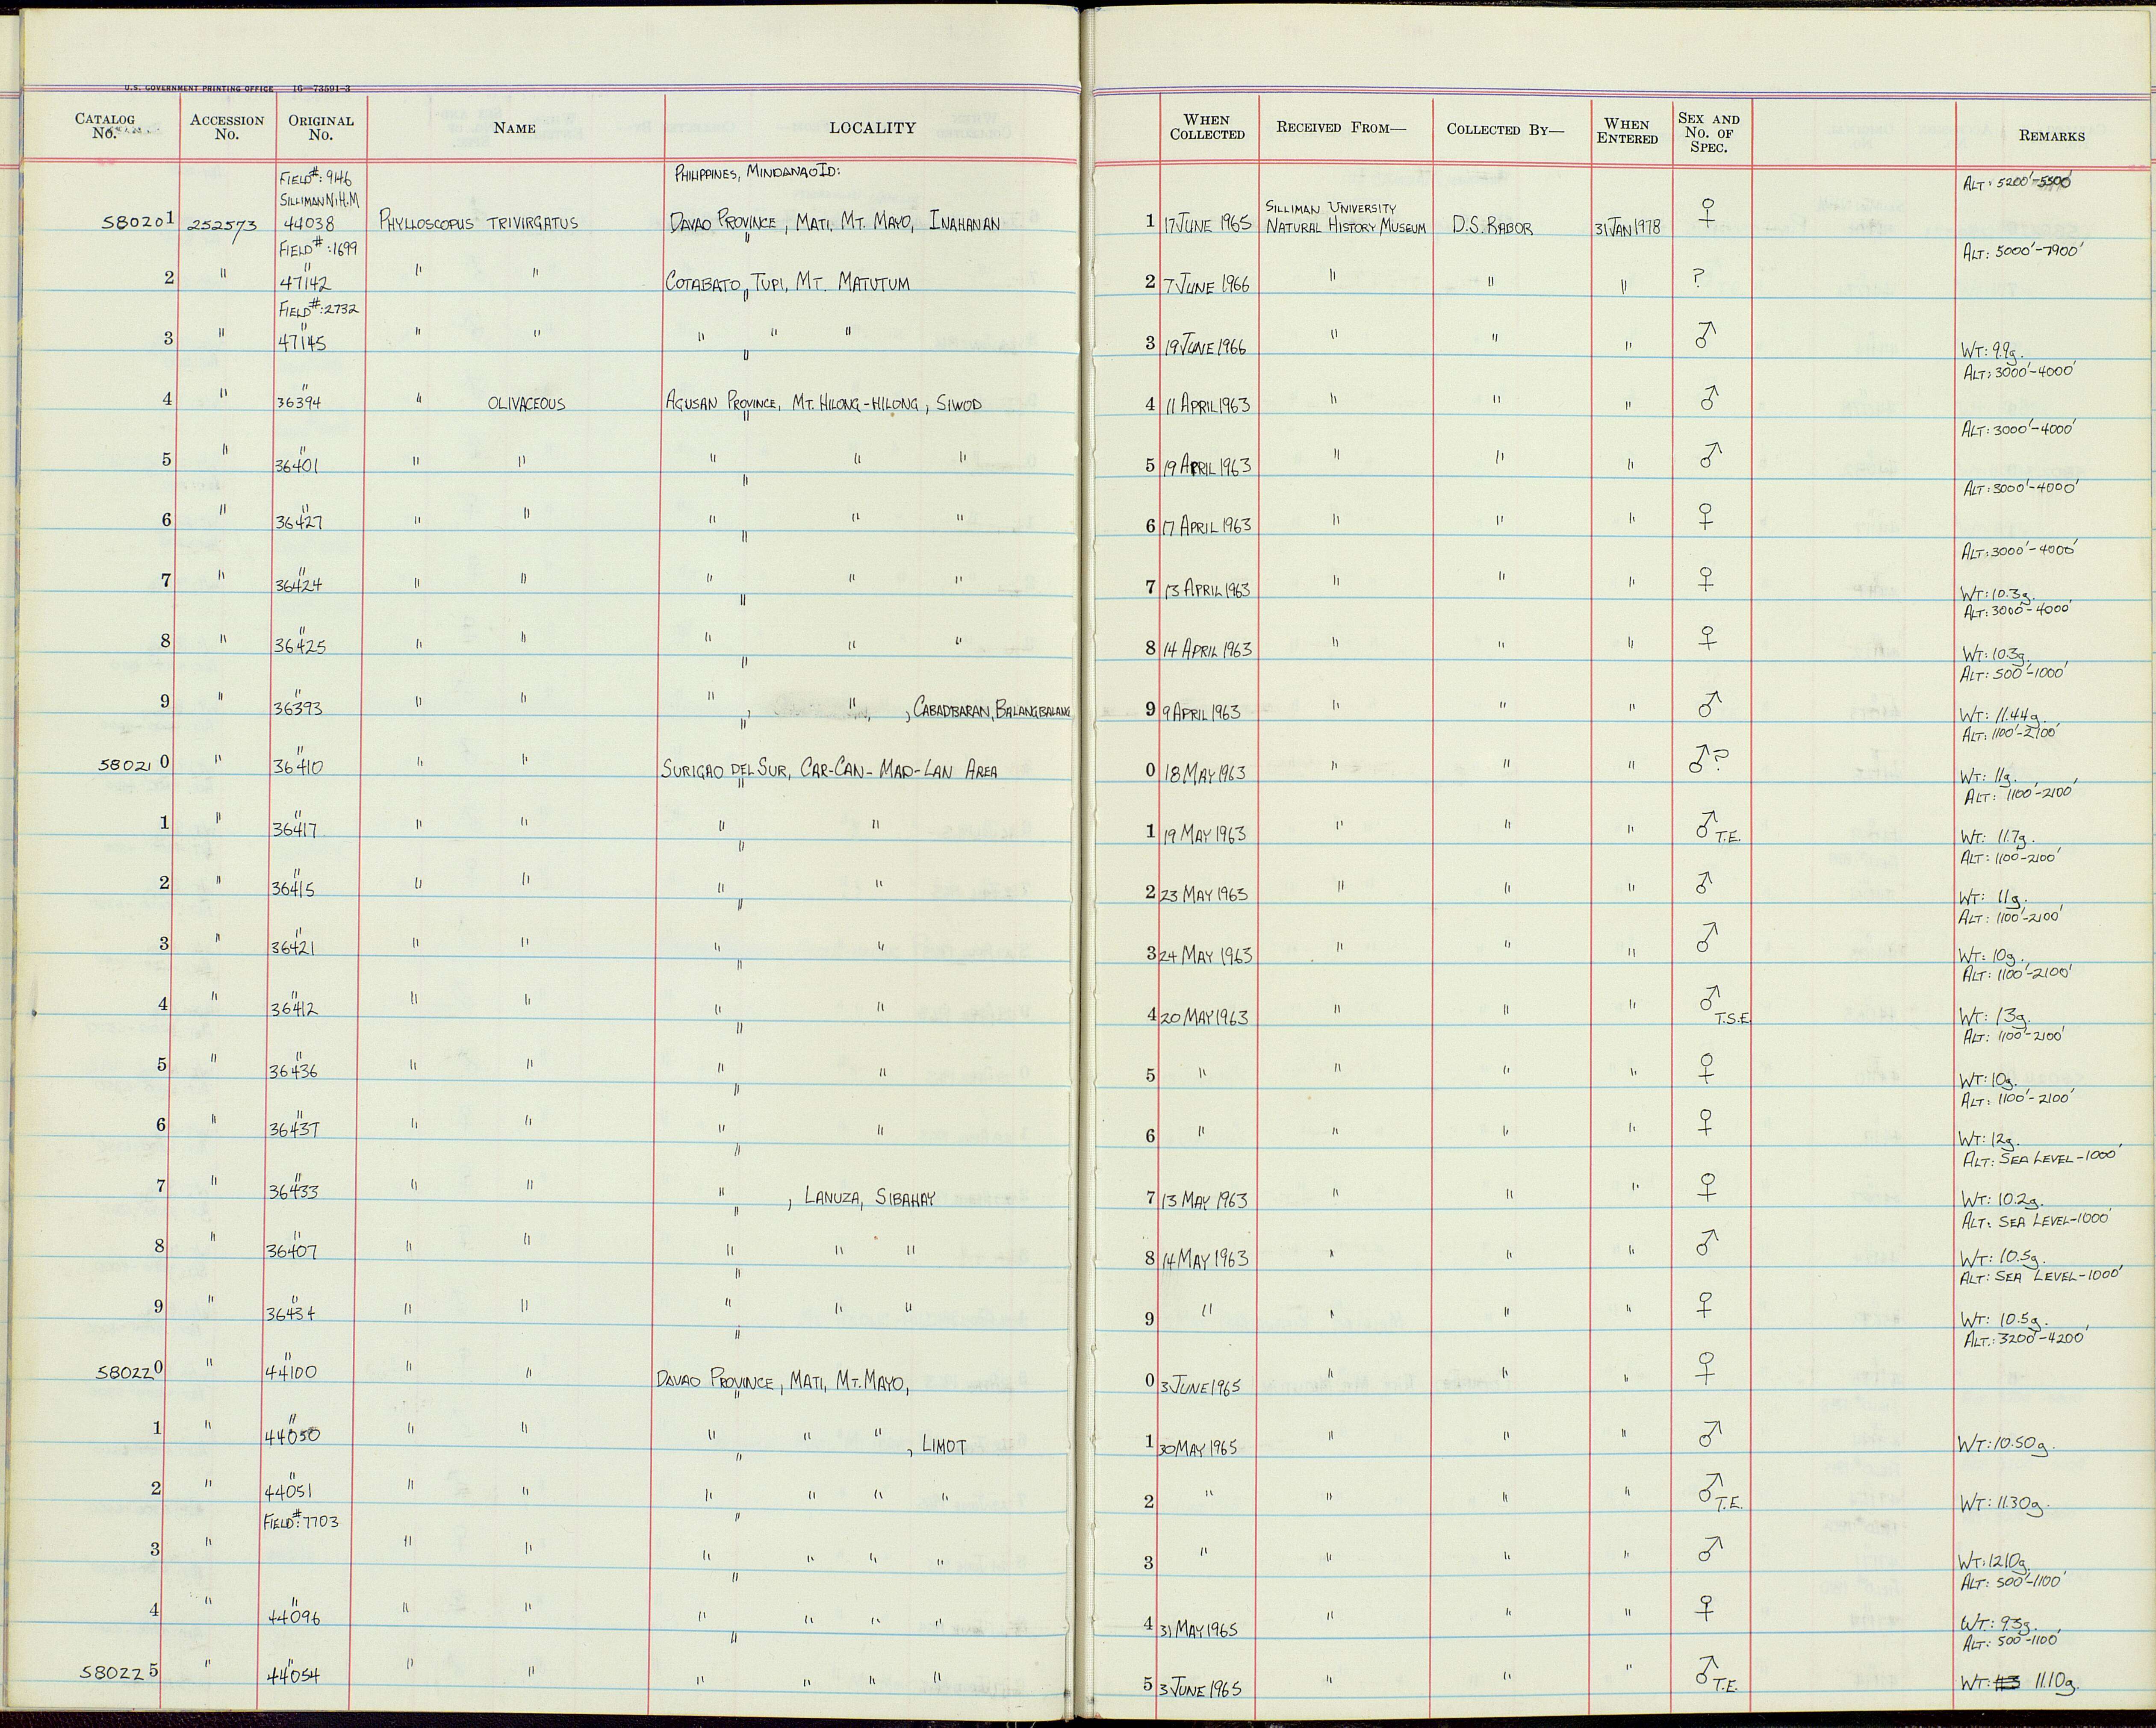 U.S. GOVERNMENT PRINTING OFFICE 16—73591-3
CATALOG No. ACCESSION No. ORIGINAL No. NAME LOCALITY WHEN COLLECTED RECEIVED FROM— COLLECTED BY— WHEN ENTERED SEX AND No. OF SPEC. REMARKS
FIELD#: 946 PHILIPPINES, MINDANAO ID: ALT: 5200'-5500'
SILLIMAN N.H.M SILLIMAN UNIVERSITY
580201 252573 44038 PHYLLOSCOPUS TRIVIRGATUS DAVAO PROVINCE, MATI, MT. MAYO, INAHANAN 1 17 JUNE 1965 NATURAL HISTORY MUSEUM D.S. RABOR 31 JAN 1978 ♀
FIELD#: 1699 " ALT: 5000'-7900'
2 " " 47142 " " COTABATO, TUPI, MT. MATUTUM 2 7 JUNE 1966 " " " ?
FIELD#: 2732 "
3 " " 47145 " " " " " 3 19 JUNE 1966 " " " ♂ WT: 9.9g.
" ALT: 3000'-4000'
4 " " 36394 " OLIVACEOUS AGUSAN PROVINCE, MT. HILONG-HILONG, SIWOD 4 11 APRIL 1963 " " " ♂
" ALT: 3000'-4000'
5 " " 36401 " " " " " 5 19 APRIL 1963 " " " ♂
" ALT: 3000'-4000'
6 " " 36427 " " " " " 6 17 APRIL 1963 " " " ♀
" ALT: 3000'-4000'
7 " " 36424 " " " " " 7 13 APRIL 1963 " " " ♀ WT: 10.3g.
" ALT: 3000'-4000'
8 " " 36425 " " " " " 8 14 APRIL 1963 " " " ♀ WT: 10.3g
" ALT: 500'-1000'
9 " " 36393 " " " " , CABADBARAN, BALANGBALANG 9 9 APRIL 1963 " " " ♂ WT: 11.44g.
" ALT: 1100'-2100'
580210 " " 36410 " " SURIGAO DEL SUR, CAR-CAN-MAD-LAN AREA 0 18 MAY 1963 " " " ♂? WT: 11g.
" ALT: 1100'-2100'
1 " " 36417 " " " " 1 19 MAY 1963 " " " ♂ T.E. WT: 11.7g.
" ALT: 1100-2100'
2 " " 36415 " " " " 2 23 MAY 1963 " " " ♂ WT: 11g.
" ALT: 1100'-2100'
3 " " 36421 " " " " 3 24 MAY 1963 " " " ♂ WT: 10g.
" ALT: 1100'-2100'
4 " " 36412 " " " " 4 20 MAY 1963 " " " ♂ T.S.E WT: 13g.
" ALT: 1100'-2100'
5 " " 36436 " " " " 5 " " " " ♀ WT: 10g.
" ALT: 1100'-2100'
6 " " 36437 " " " " 6 " " " " ♀ WT: 12g.
" ALT: SEA LEVEL-1000'
7 " " 36433 " " " , LANUZA, SIBAHAY 7 13 MAY 1963 " " " ♀ WT: 10.2g.
" ALT: SEA LEVEL-1000'
8 " " 36407 " " " " " 8 14 MAY 1963 " " " ♂ WT: 10.5g.
" ALT: SEA LEVEL-1000'
9 " " 36434 " " " " " 9 " " " " ♀ WT: 10.5g.
" ALT: 3200'-4200'
580220 " " 44100 " " DAVAO PROVINCE, MATI, MT. MAYO, 0 3 JUNE 1965 " " " ♀
"
1 " " 44050 " " " " " , LIMOT 1 30 MAY 1965 " " " ♂ WT: 10.50g.
"
2 " " 44051 " " " " " " 2 " " " " ♂ T.E. WT: 11.30g.
FIELD#: 7703 "
3 " " " " " " " 3 " " " " ♂ WT: 12.10g
" ALT: 500'-1100'
4 " " 44096 " " " " " " 4 31 MAY 1965 " " " ♀ WT: 9.3g.
" ALT: 500'-1100'
580225 " " 44054 " " " " " " 5 3 JUNE 1965 " " " ♂ T.E. WT: 11.10g.